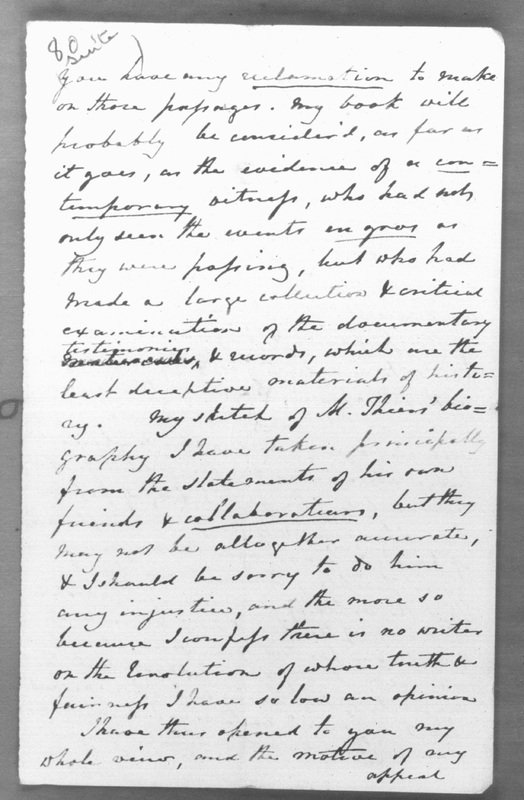 8 Suite)
You have any reclamation to make
on those passages. My book will
probably be consider'd, as far as
it goes, as the evidence of a con=
temporary witness, who had not
only seen the events en gros as
they were passing, but who had
made a large collection & critical
examination of the documentary
testimonies
& records, which are the
least deceptive materials of histo=
ry. My sketch of M. Thiers' bio=
graphy I have taken principally
from the statements of his own
friends & collaborateurs, but they
may not be altogether accurate,
& I should be sorry to do him
any injustice, and the more so
because I confess there is no writer
on the Revolution of whose truth &
fairness I have so low an opinion
I have thus opened to you my
whole view, and the motive of my
appeal